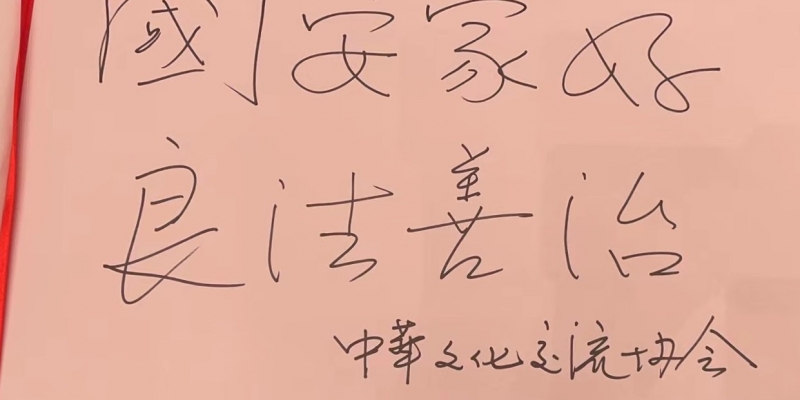 國安家好
良法善治
中華文化交流协会